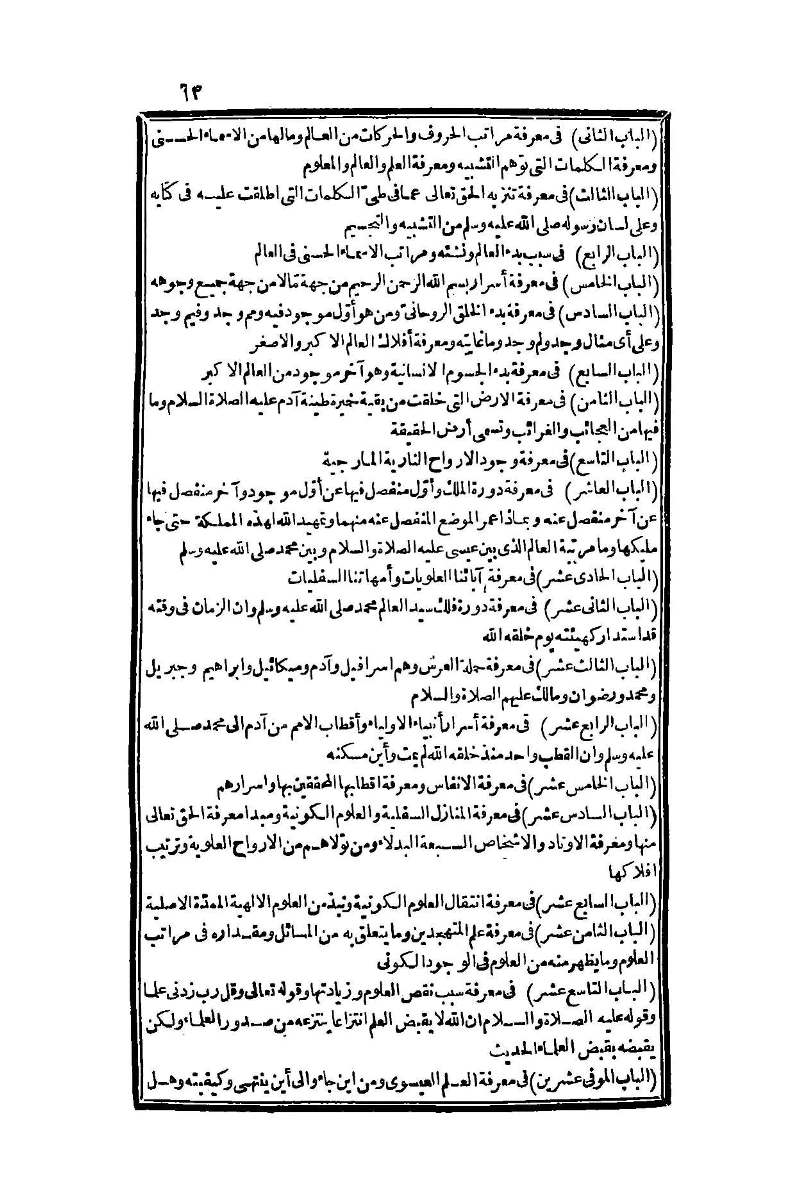 ٦٣
(الباب الثانى) فى معرفة مراتب الحروف والحركات من العالم ومالها من الاسماء الحسنى
ومعرفة الكلمات التى توهم التشبيه ومعرفة العلم والعالم والمعلوم
(الباب الثالث) فى معرفة تنزيه الحق تعالى عما فى طىّ الكلمات التى اطلقت عليه فى كتابه
وعلى لسان رسوله صلى الله عليه وسلم من التشبيه والتجسيم
(الباب الرابع) فى سبب بدء العالم ونشئه ومراتب الاسماء الحسنى فى العالم
(الباب الخامس) فى معرفة أسرار بسم الله الرحمن الرحيم من جهة مّا لا من جهة جميع وجوهه
(الباب السادس) فى معرفة بدء الخلق الروحانىّ ومن هو أوّل موجود فيه ومم وجد وفيم وجد
وعلى أى مثال وجد ولم وجد وما غايته ومعرفة أفلاك العالم الاكبر والاصغر
(الباب السابع) فى معرفة بدء الجسوم الانسانية وهو آخر موجود من العالم الاكبر
(الباب الثامن) فى معرفة الارض التى خلقت من بقية خميرة طينة آدم عليه الصلاة السلام وما
فيها من العجائب والغرائب وتسمى أرض الحقيقة
(الباب التاسع) فى معرفة وجود الارواح النارية المارجية
(الباب العاشر) فى معرفة دورة الملك وأوّل منفصل فيها عن أوّل موجود وآخر منفصل فيها
عن آخر منفصل عنه وبماذا عمر الموضع المنفصل عنه منهما وتمهيد الله لهذه المملكة حتى جاء
مليكها وما مرتبة العالم الذى بين عيسى عليه الصلاة والسلام وبين محمد صلى الله عليه وسلم
(الباب الحادى عشر) فى معرفة آبائنا العلويات وأمهاتنا السفليات
(الباب الثانى عشر) فى معرفة دورة فلك سيد العالم محمد صلى الله عليه وسلم وان الزمان فى وقته
قد استدار كهيئته يوم خلقه الله
(الباب الثالث عشر) فى معرفة حملة العرش وهم اسرافيل وآدم وميكائيل وابراهيم وجبريل
ومحمد ورضوان ومالك عليهم الصلاة والسلام
(الباب الرابع عشر) فى معرفة أسرار أنبياء الاولياء وأقطاب الامم من آدم الى محمد صلى الله
عليه وسلم وان القطب واحد منذ خلقه الله لم يمت وأين مسكنه
(الباب الخامس عشر) فى معرفة الانفاس ومعرفة اقطابها المحققين بها واسرارهم
(الباب السادس عشر) فى معرفة المنازل السفلية والعلوم الكونية ومبدا معرفة الحق تعالى
منها ومعرفة الاوتاد والاشخاص السبعة البدلاء ومن تولاهم من الارواح العلوية وترتيب
افلاكها
(الباب السابع عشر) فى معرفة انتقال العلوم الكونية ونبذ من العلوم الالهية الممدّة الاصلية
(الباب الثامن عشر) فى معرفة علم المتهجدين وما يتعلق به من المسائل ومقداره فى مراتب
العلوم وما يظهر منه من العلوم فى الوجود الكونى
(الباب التاسع عشر) فى معرفة سبب نقص العلوم وزيادتها وقوله تعالى وقل رب زدنى علما
وقوله عليه الصلاة والسلام ان الله لا يقبض العلم انتزاعا ينتزعه من صدور العلماء ولكن
يقبضه بقبض العلماء الحديث
(الباب الموفى عشرين) فى معرفة العلم العيسوى ومن اين جاء والى أين ينتهى وكيفيته وهل